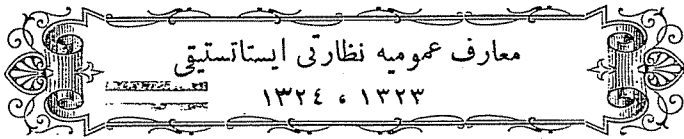 معارف عمومیه نظارتی ایستاتستیقی
١٣٢٣ ، ١٣٢٤